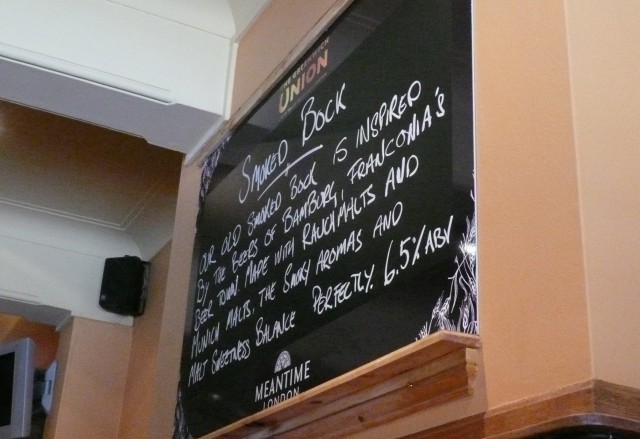 THE GREENWICH
UNION
SMOKED BOCK
OUR OLD SMOKED BOCK IS INSPIRED
BY THE BEERS OF BAMBURG, FRANCONIA'S
BEER TOWN. MADE WITH RAUCHMALTS AND
MUNICH MALTS, THE SMOKY AROMAS AND
MALT SWEETNESS BALANCE PERFECTLY. 6.5% ABV
MEANTIME
LONDON